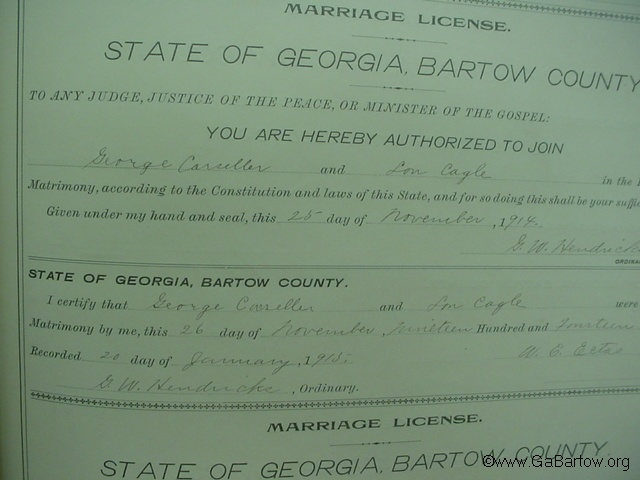 MARRIAGE LICENSE.
STATE OF GEORGIA, BARTOW COUNTY
TO ANY JUDGE, JUSTICE OF THE PEACE, OR MINISTER OF THE GOSPEL:
YOU ARE HEREBY AUTHORIZED TO JOIN
George and Lon Cagle in the
Matrimony, according to the Constitution and laws of this State, and for so doing this shall be your suffic
Given under my hand and seal, this 25 day of November, 1914.
G. W. Hendricks
ORDINAR
STATE OF GEORGIA, BARTOW COUNTY.
I certify that George and Lon Cagle were
Matrimony by me, this 26 day of November, Nineteen Hundred and Fourteen
Recorded 20 day of January, 1915. W. E.
G. W. Hendricks, Ordinary.
MARRIAGE LICENSE.
STATE OF GEORGIA, BARTOW COUNTY.
©www.GaBartow.org